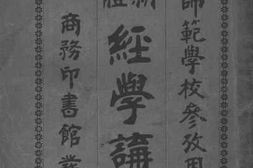 師範學校參攷用
新體
經學講
商務印書館